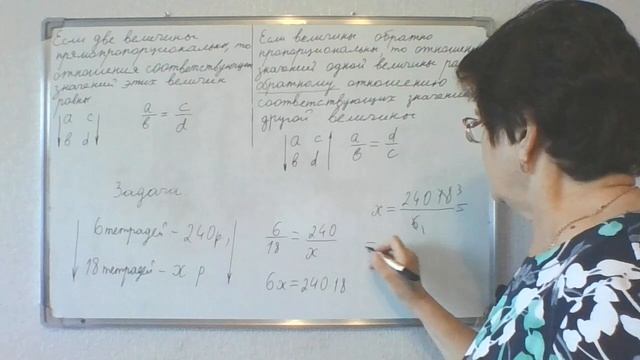 Если две величины
прямопропорциональны, то
отношения соответствующих
значений этих величин
равны
a c
b d
a/b = c/d
Если величины обратно
пропорциональны то отношение
значений одной величины
обратному отношению
соответствующих значений
другой величины
a c
b d
a/b = d/c
Задача
6 тетрадей – 240 р,
18 тетрадей – x р
6/18 = 240/x
6x = 240 18
x = 240 18 3 / 6 1 =